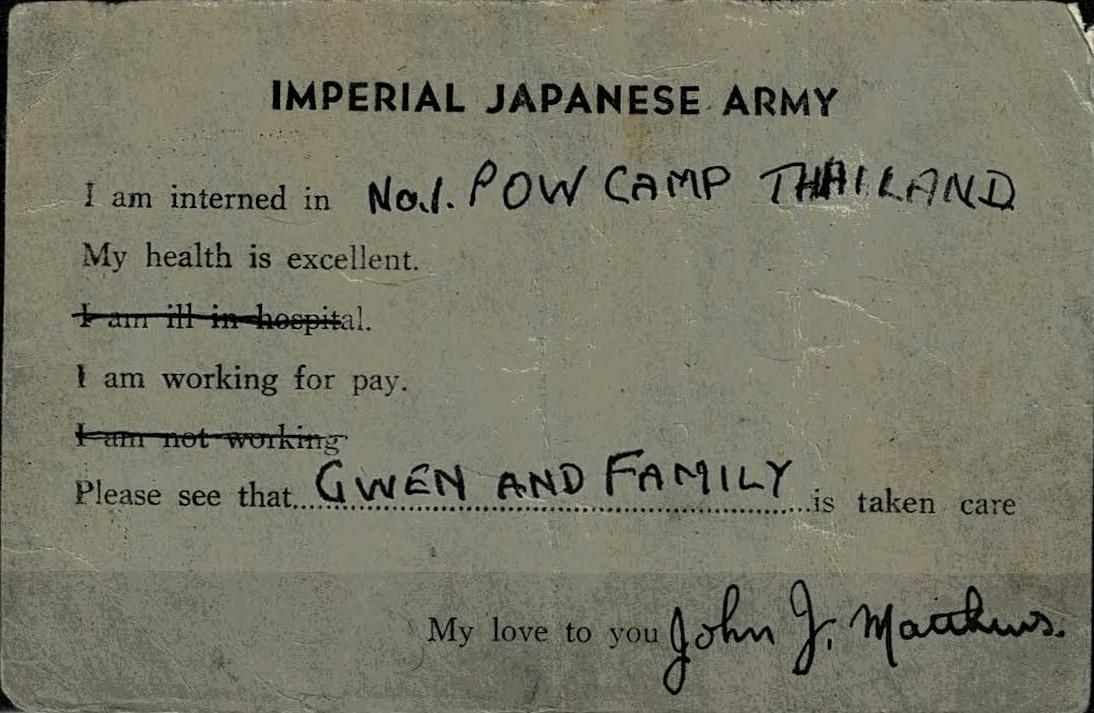 IMPERIAL JAPANESE ARMY
I am interned in No.1. POW CAMP THAILAND
My health is excellent.
I am ill in hospital.
I am working for pay.
I am not working
Please see that GWEN AND FAMILY is taken care
My love to you John J. Matthews.